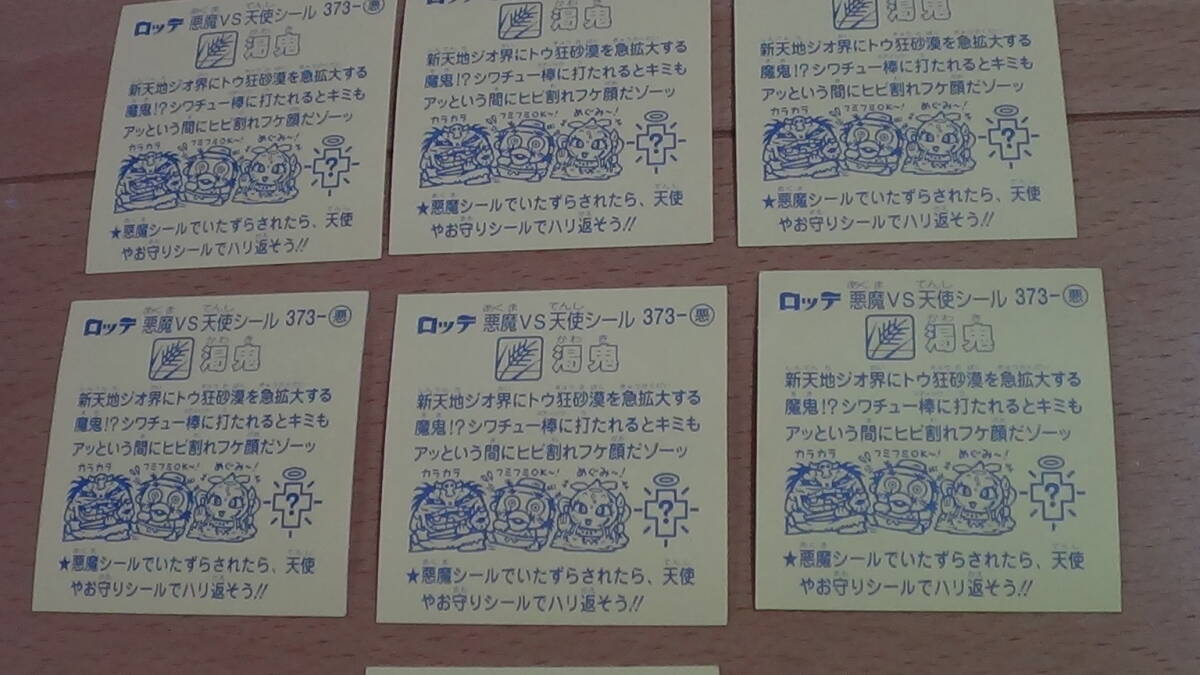 ロッテ 悪魔VS天使シール 373-悪
渇鬼
新天地ジオ界にトウ狂砂漠を急拡大する
魔鬼!?シワチュー棒に打たれるとキミも
アッという間にヒビ割れフケ顔だゾーッ
カラカラ フミフミOK〜! めぐみ〜!
?
★悪魔シールでいたずらされたら、天使
やお守りシールでハリ返そう!!
ロッテ 悪魔VS天使シール 373-悪
渇鬼
新天地ジオ界にトウ狂砂漠を急拡大する
魔鬼!?シワチュー棒に打たれるとキミも
アッという間にヒビ割れフケ顔だゾーッ
カラカラ フミフミOK〜! めぐみ〜!
?
★悪魔シールでいたずらされたら、天使
やお守りシールでハリ返そう!!
渇鬼
新天地ジオ界にトウ狂砂漠を急拡大する
魔鬼!?シワチュー棒に打たれるとキミも
アッという間にヒビ割れフケ顔だゾーッ
カラカラ フミフミOK〜! めぐみ〜!
?
★悪魔シールでいたずらされたら、天使
やお守りシールでハリ返そう!!
ロッテ 悪魔VS天使シール 373-悪
渇鬼
新天地ジオ界にトウ狂砂漠を急拡大する
魔鬼!?シワチュー棒に打たれるとキミも
アッという間にヒビ割れフケ顔だゾーッ
カラカラ フミフミOK〜! めぐみ〜!
?
★悪魔シールでいたずらされたら、天使
やお守りシールでハリ返そう!!
ロッテ 悪魔VS天使シール 373-悪
渇鬼
新天地ジオ界にトウ狂砂漠を急拡大する
魔鬼!?シワチュー棒に打たれるとキミも
アッという間にヒビ割れフケ顔だゾーッ
カラカラ フミフミOK〜! めぐみ〜!
?
★悪魔シールでいたずらされたら、天使
やお守りシールでハリ返そう!!
ロッテ 悪魔VS天使シール 373-悪
渇鬼
新天地ジオ界にトウ狂砂漠を急拡大する
魔鬼!?シワチュー棒に打たれるとキミも
アッという間にヒビ割れフケ顔だゾーッ
カラカラ フミフミOK〜! めぐみ〜!
?
★悪魔シールでいたずらされたら、天使
やお守りシールでハリ返そう!!